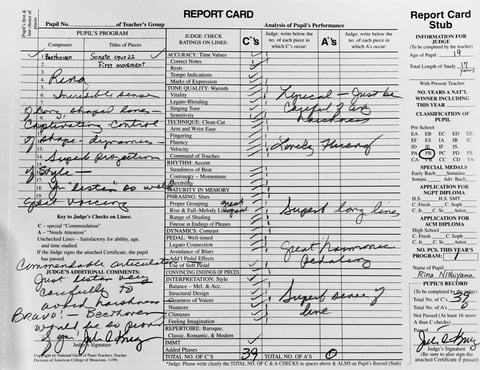 REPORT CARD
Report Card Stub
Pupil No. of Teacher's Group
Analysis of Pupil's Performance
Pupil's first & last choice
PUPIL'S PROGRAM
Composers
Titles of Pieces
1. Beethoven Sonata op. 22
2. First movement
3.
4. Rina
5. Incredible sense
6. of long, shaped lines -
Captivating control
of shape - dynamics
Superb Projection
of style -
You listen so well
great voicing
Key to Judge's Checks on Lines:
C - special "Commendation"
A - "Needs Attention"
Unchecked Lines - Satisfactory for ability, age, and time studied.
If Judge signs the attached Certificate, the pupil has passed.
Commendable articulation
JUDGE'S ADDITIONAL COMMENTS:
Just listen very
carefully to
avoid harshness
Bravo! - Beethoven
would be so proud
of you
Judge's Signature
Copyright by National Guild of Piano Teachers, Teacher Division American College of Musicians,
JUDGE: CHECK RATINGS ON LINES:
Judge: write below the no. of each piece in which C's occur:
C's
Judge: write below the no. of each piece in which A's occur:
A's
ACCURACY: Time Values
Correct Notes
Rests
Tempo Indications
Marks of Expression
TONE QUALITY: Warmth
Vitality
Legato-Blending
Singing Tone
Sensitivity
TECHNIQUE: Clean-Cut
Arm and Wrist Ease
Fingering
Fluency
Velocity
Command of Touches
RHYTHM: Accent
Steadiness of Beat
Continuity - Momentum
Flexibility
MATURITY IN MEMORY
PHRASING: Slurs
Proper Grouping
Rise & Fall-Melody Line
Range of Shading
Finesse in Endings of Phrases
DYNAMICS: Contrast
PEDAL: Well-timed
Legato Connection
Avoidance of Blurs
Add'l Pedal Effects
Use of Soft Pedal
CONVINCING ENDINGS OF PIECES
INTERPRETATION: Style
Balance - Mel. & Acc.
Structural Design
Clearness of Voices
Nuances
Climaxes
Feeling Imagination
REPERTOIRE: Baroque, Classic, Romantic, & Modern
IMMT
Added Phases
TOTAL NO. OF C'S 39
TOTAL NO. OF A'S 0
Lyrical - Just be
careful of any
harshness
Lovely Phrasing
Superb long line
Great Harmonic
Pedaling
Superb sense of
line
*Judge: Please write clearly the TOTAL NO. of C & A CHECKS in spaces above & ALSO on Pupil's Record (Stub)
INFORMATION FOR JUDGE
(To be completed by the teacher)
Age of Pupil 19
Total Length of Study 17
With Present Teacher
NO. YEARS A NAT'L WINNER INCLUDING THIS YEAR
CLASSIFICATION OF PUPIL
Pre-School
EA EB EC ED EE
EF IA IB IC
ID IE IF
PA PB PC PD PS
CA YB YC YD YA
SPECIAL MEDALS
Early Bach Sonatina
Sonata Adv. Bach
APPLICATION FOR NGPT DIPLOMA
H.S. SMT
C - Fresh C - Soph
C - Jr C - Sr Artist
APPLICATION FOR ACM DIPLOMA
H.S. C - Fresh C - Soph.
C - Jr C - Sr Artist
NO. PCS. THIS YEAR'S PROGRAM 1
Name of Pupil:
Rina Nishiyama
PUPIL'S RECORD
Total No. of C's 39
Total No. of A's 0
Not Passed (At least 16 more A than C checks)
Judge's Signature
(Be Sure to also sign the attached Certificate if Passed).